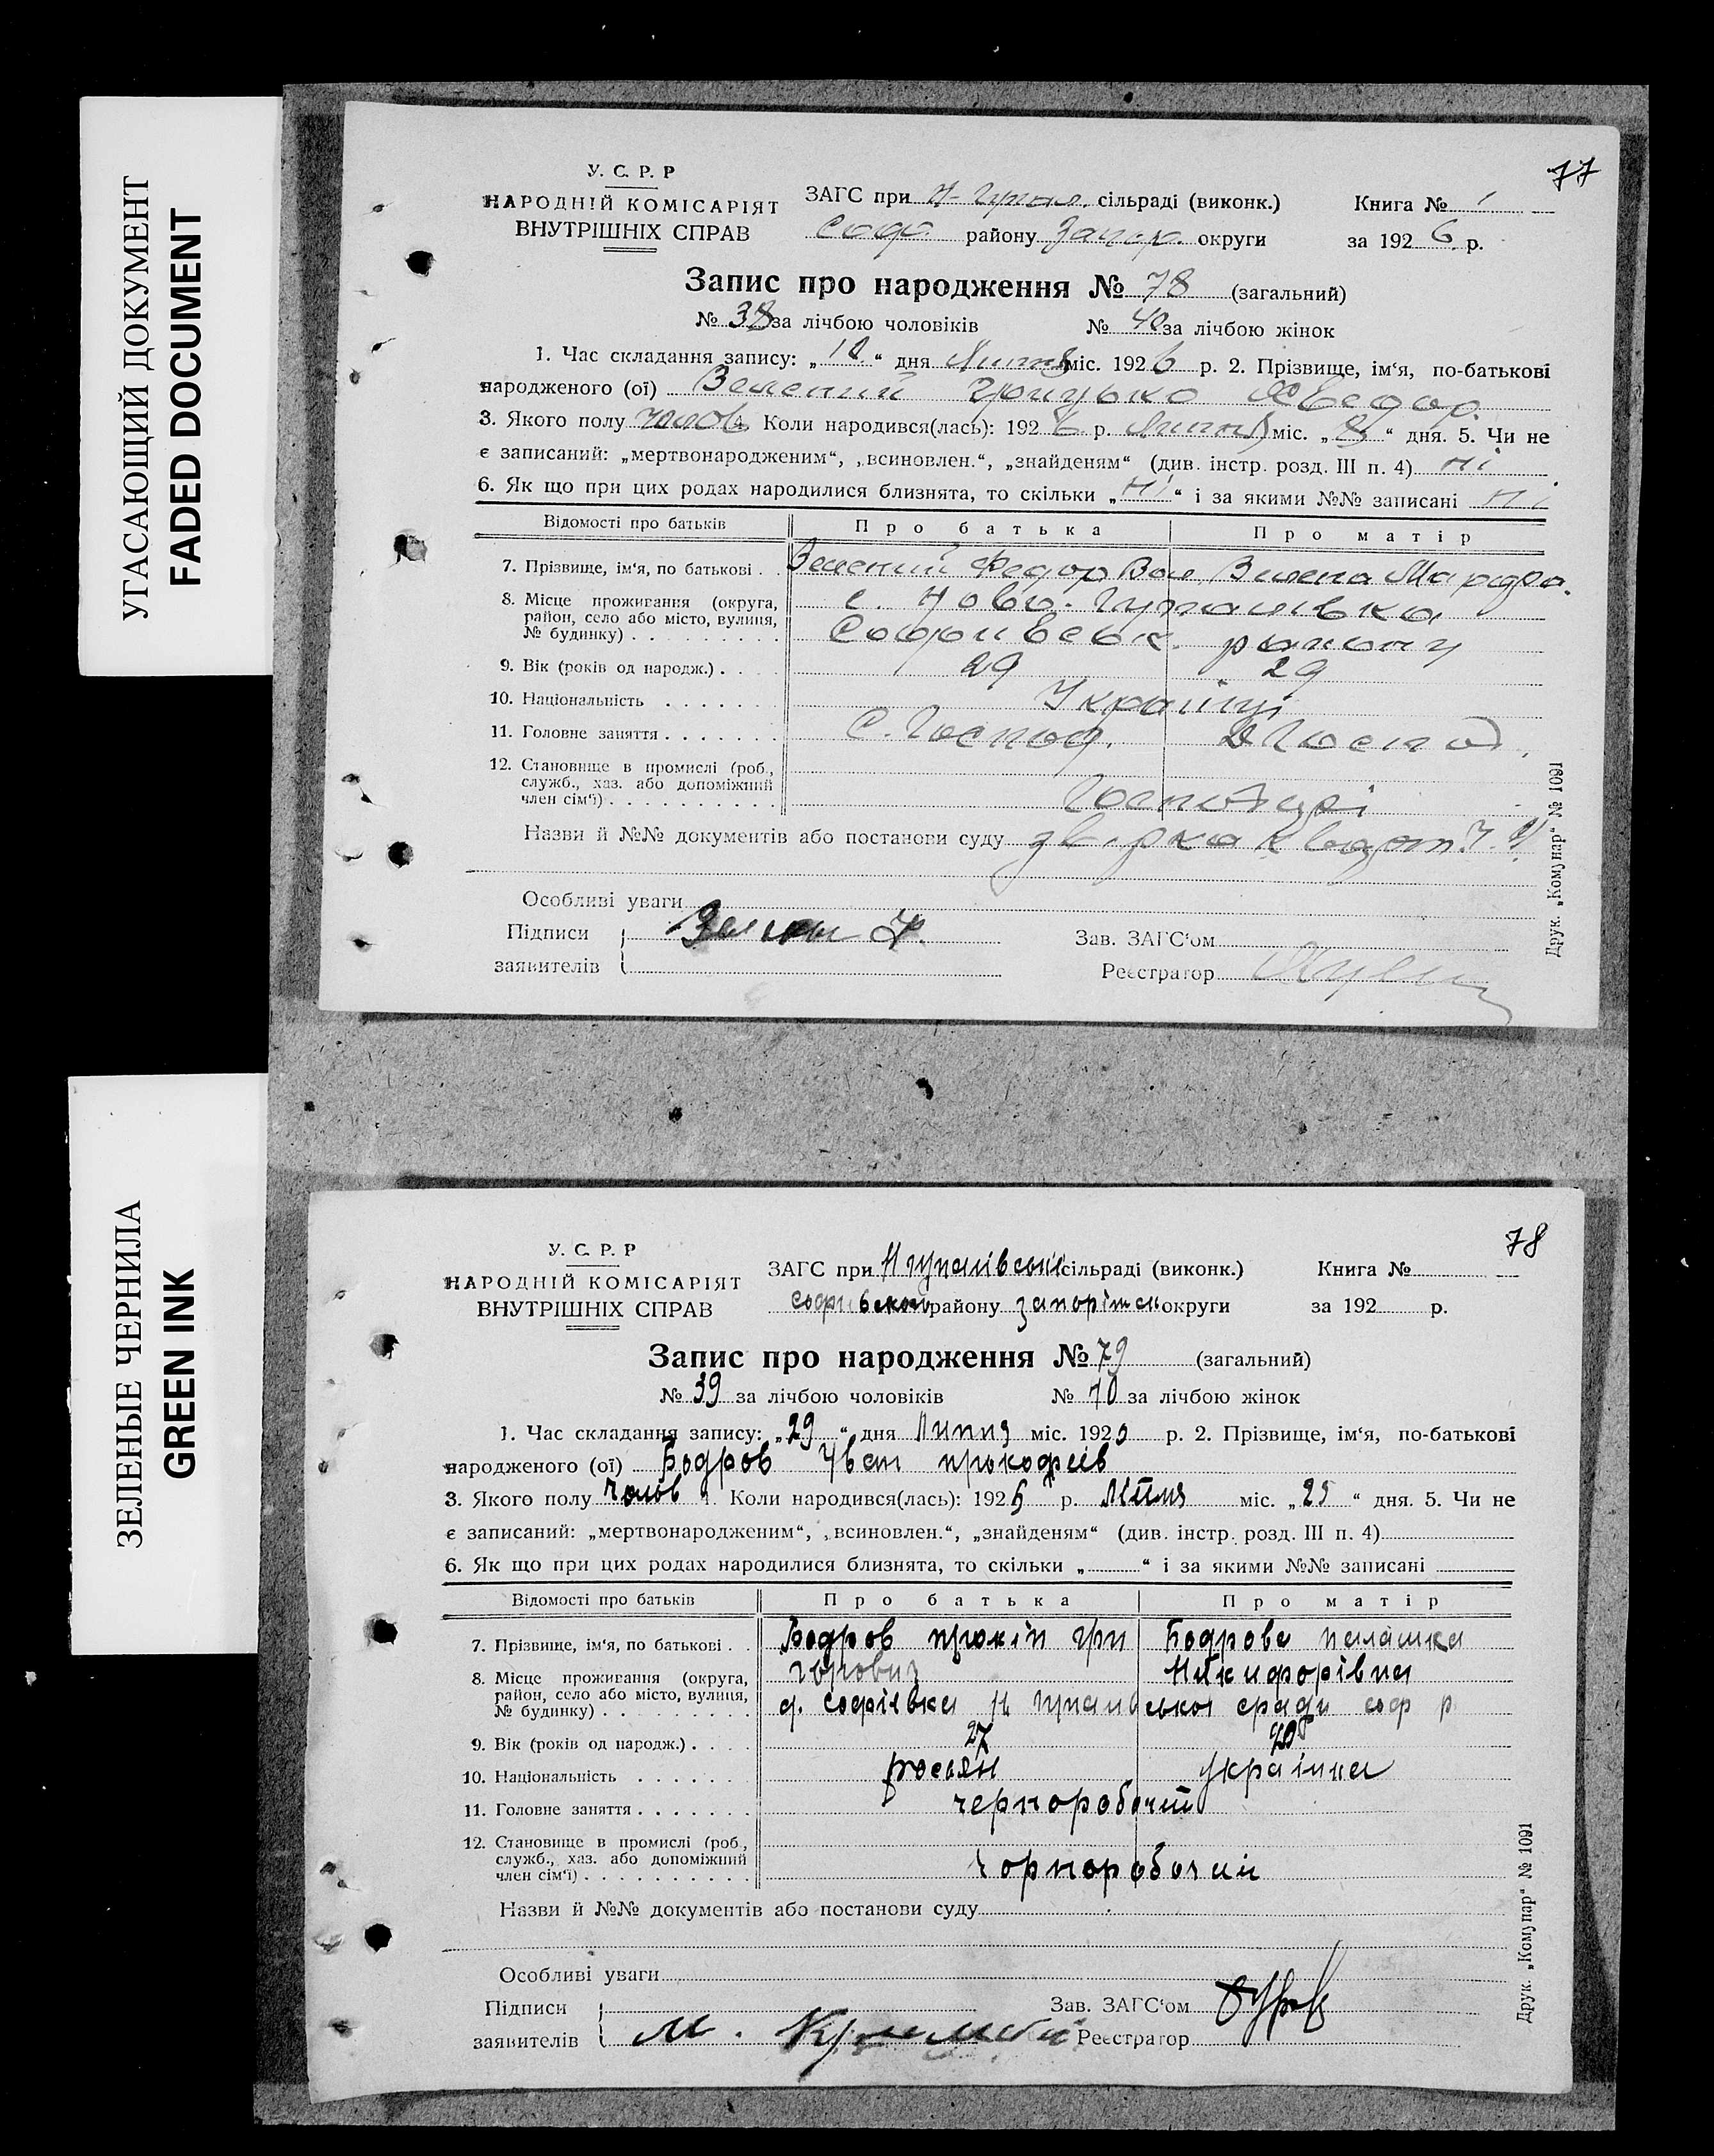 УГАСАЮЩИЙ ДОКУМЕНТ
FADED DOCUMENT
77
У. С. Р. Р
НАРОДНІЙ КОМІСАРІЯТ
ВНУТРІШНІХ СПРАВ
ЗАГС при сільраді (виконк.)
Соф. району Запор. округи
Книга № 1
за 1926 р.
Запис про народження № 78 (загальний)
№ 38 за лічбою чоловіків № 40 за лічбою жінок
1. Час складання запису: „ “ дня Липня міс. 1926 р. 2. Прізвище, ім‘я, по-батькові
народженого (ої) Зелений Грицько Хведор.
3. Якого полу чолов 4. Коли народився(лась): 1926 р. Липня міс. „8“ дня. 5. Чи не
є записаний: „мертвонародженим“, „всиновлен.“, „знайденям“ (див. інстр. розд. III п. 4) ні
6. Як що при цих родах народилися близнята, то скільки „ні“ і за якими №№ записані ні
Відомості про батьків Про батька Про матір
7. Прізвище, ім‘я, по батькові . . Зелений Федор Зелена
8. Місце проживання (округа, район, село або місто, вулиця, № будинку) . . . с. Ново-Гупалівка
Софиївськ. району
9. Вік (років од народж.) . . . . 29 29
10. Національність . . . . . . . Українці
11. Головне заняття . . . . . . . С. Господ. Госпо
12. Становище в промислі (роб., служб., хаз. або допоміжний член сім‘ї) . . . Господарі
Назви й №№ документів або постанови суду
Особливі уваги
Підписи
заявителів
Зав. ЗАГС‘ом
Реєстратор
Друк. „Комунар“ № 1091
ЗЕЛЕНЫЕ ЧЕРНИЛА
GREEN INK
78
У. С. Р. Р
НАРОДНІЙ КОМІСАРІЯТ
ВНУТРІШНІХ СПРАВ
ЗАГС при Н гупалівській сільраді (виконк.)
софиевского району запоріжск округи
Книга №
за 192 р.
Запис про народження № 79 (загальний)
№ 39 за лічбою чоловіків № за лічбою жінок
1. Час складання запису: „29“ дня Липня міс. 192 р. 2. Прізвище, ім‘я, по-батькові
народженого (ої) Бодров Іван прокофиів
3. Якого полу чолов 4. Коли народився(лась): 1926 р. міс. „25“ дня. 5. Чи не
є записаний: „мертвонародженим“, „всиновлен.“, „знайденям“ (див. інстр. розд. III п. 4)
6. Як що при цих родах народилися близнята, то скільки „ “ і за якими №№ записані
Відомості про батьків Про батька Про матір
7. Прізвище, ім‘я, по батькові . . Бодров прокіп гри Бодрова палашка
горовиз Никифорівна
8. Місце проживання (округа, район, село або місто, вулиця, № будинку) . . . д. софіівка н гупалівської сради соф р
9. Вік (років од народж.) . . . . 27
10. Національність . . . . . . . росіян українка
11. Головне заняття . . . . . . . чернорабочий
12. Становище в промислі (роб., служб., хаз. або допоміжний член сім‘ї) . . . чорноробочий
Назви й №№ документів або постанови суду
Особливі уваги
Підписи
заявителів М.
Зав. ЗАГС‘ом
Реєстратор
Друк. „Комунар“ № 1091